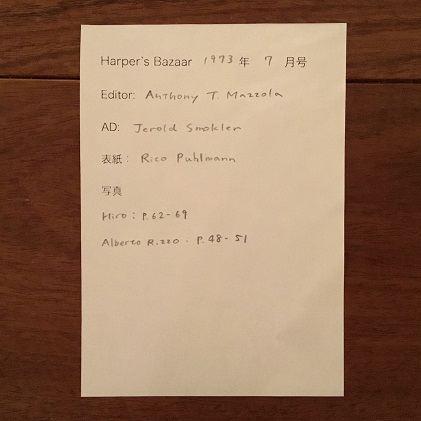 Harper's Bazaar 1973 年 7 月号
Editor: Anthony T. Mazzola
AD: Jerold Smokler
表紙: Rico Puhlmann
写真
Hiro: P.62-69
Alberto Rizzo. P.48-51